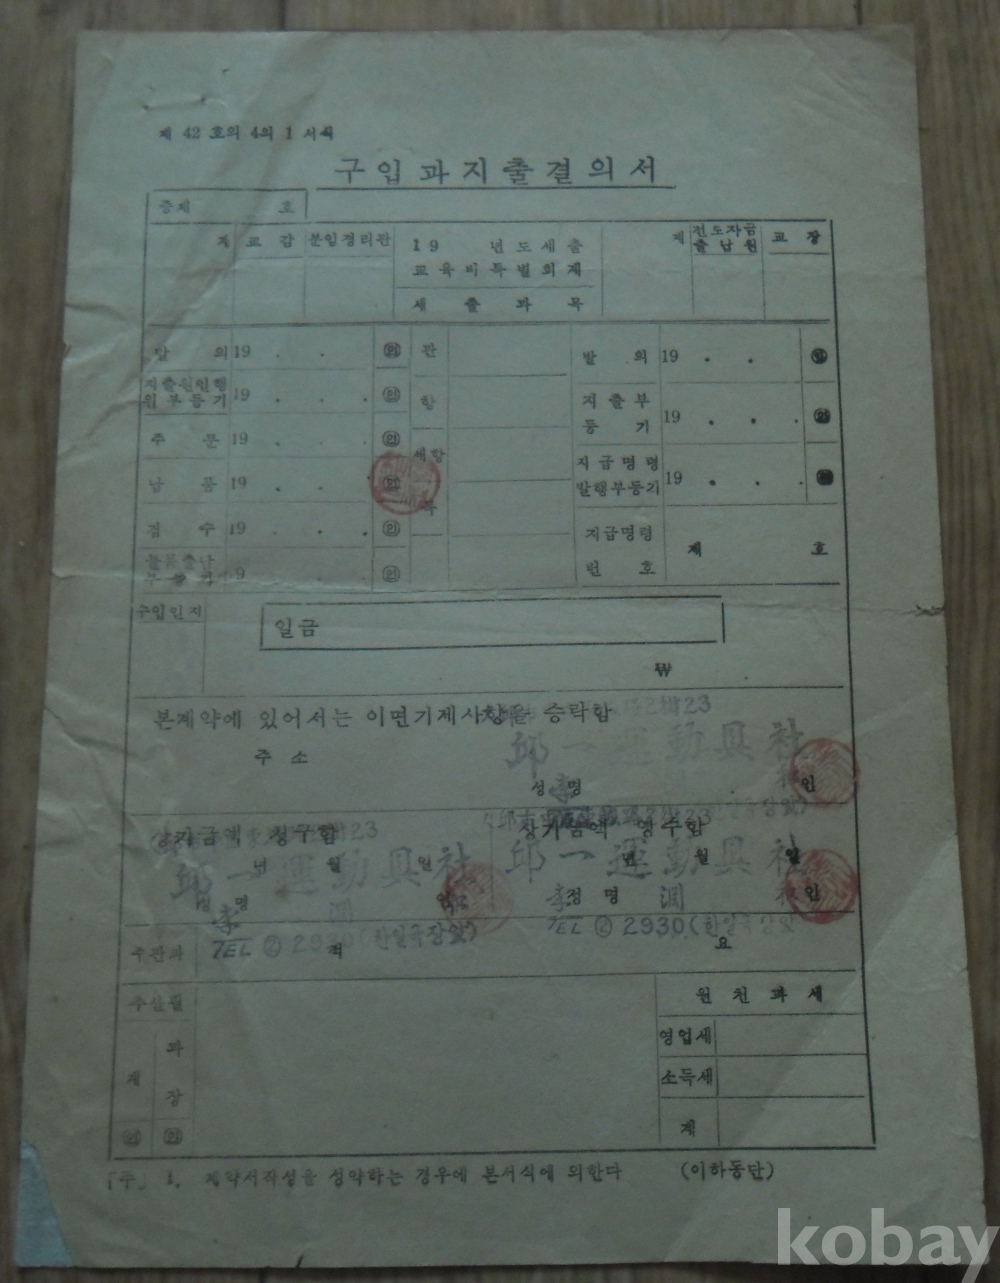 제 42 호의 4의 1 서식
구입과지출결의서
증제 호
계 교감 분임경리관 19 년도세출 계 전도자금 교장
교육비특별회계 출납원
세출과목
발의 19 . . 인 관 발의 19 . . 인
지출원인행 19 . . 인 항 지출부 19 . . . 인
위부등기 등기
주문 19 . . 인 세항 지급명령 19 . . .
납품 19 . . 인 목 발행부등기
검수 19 . . . 인 지급명령 제 호
물품출납 19 . . 인 번호
수입인지 일금
₩
본계약에 있어서는 이면기재사항을 승락함
주소 23
邱一運動具社
성명 李 인
상기금액 청구함 23 상기금액 영수함 23
년 월 일 년 월 일
邱一運動具社 邱一運動具社
성명 李 淵 성명 李 淵 인
TEL ② 2930 (한일극장앞) TEL ② 2930 (한일극장앞)
주관과 적 요
원천과세
영업세
과 소득세
계 장 계
인 인
「주」 1. 계약서작성을 성약하는 경우에 본서식에 의한다 (이하동단)
kobay